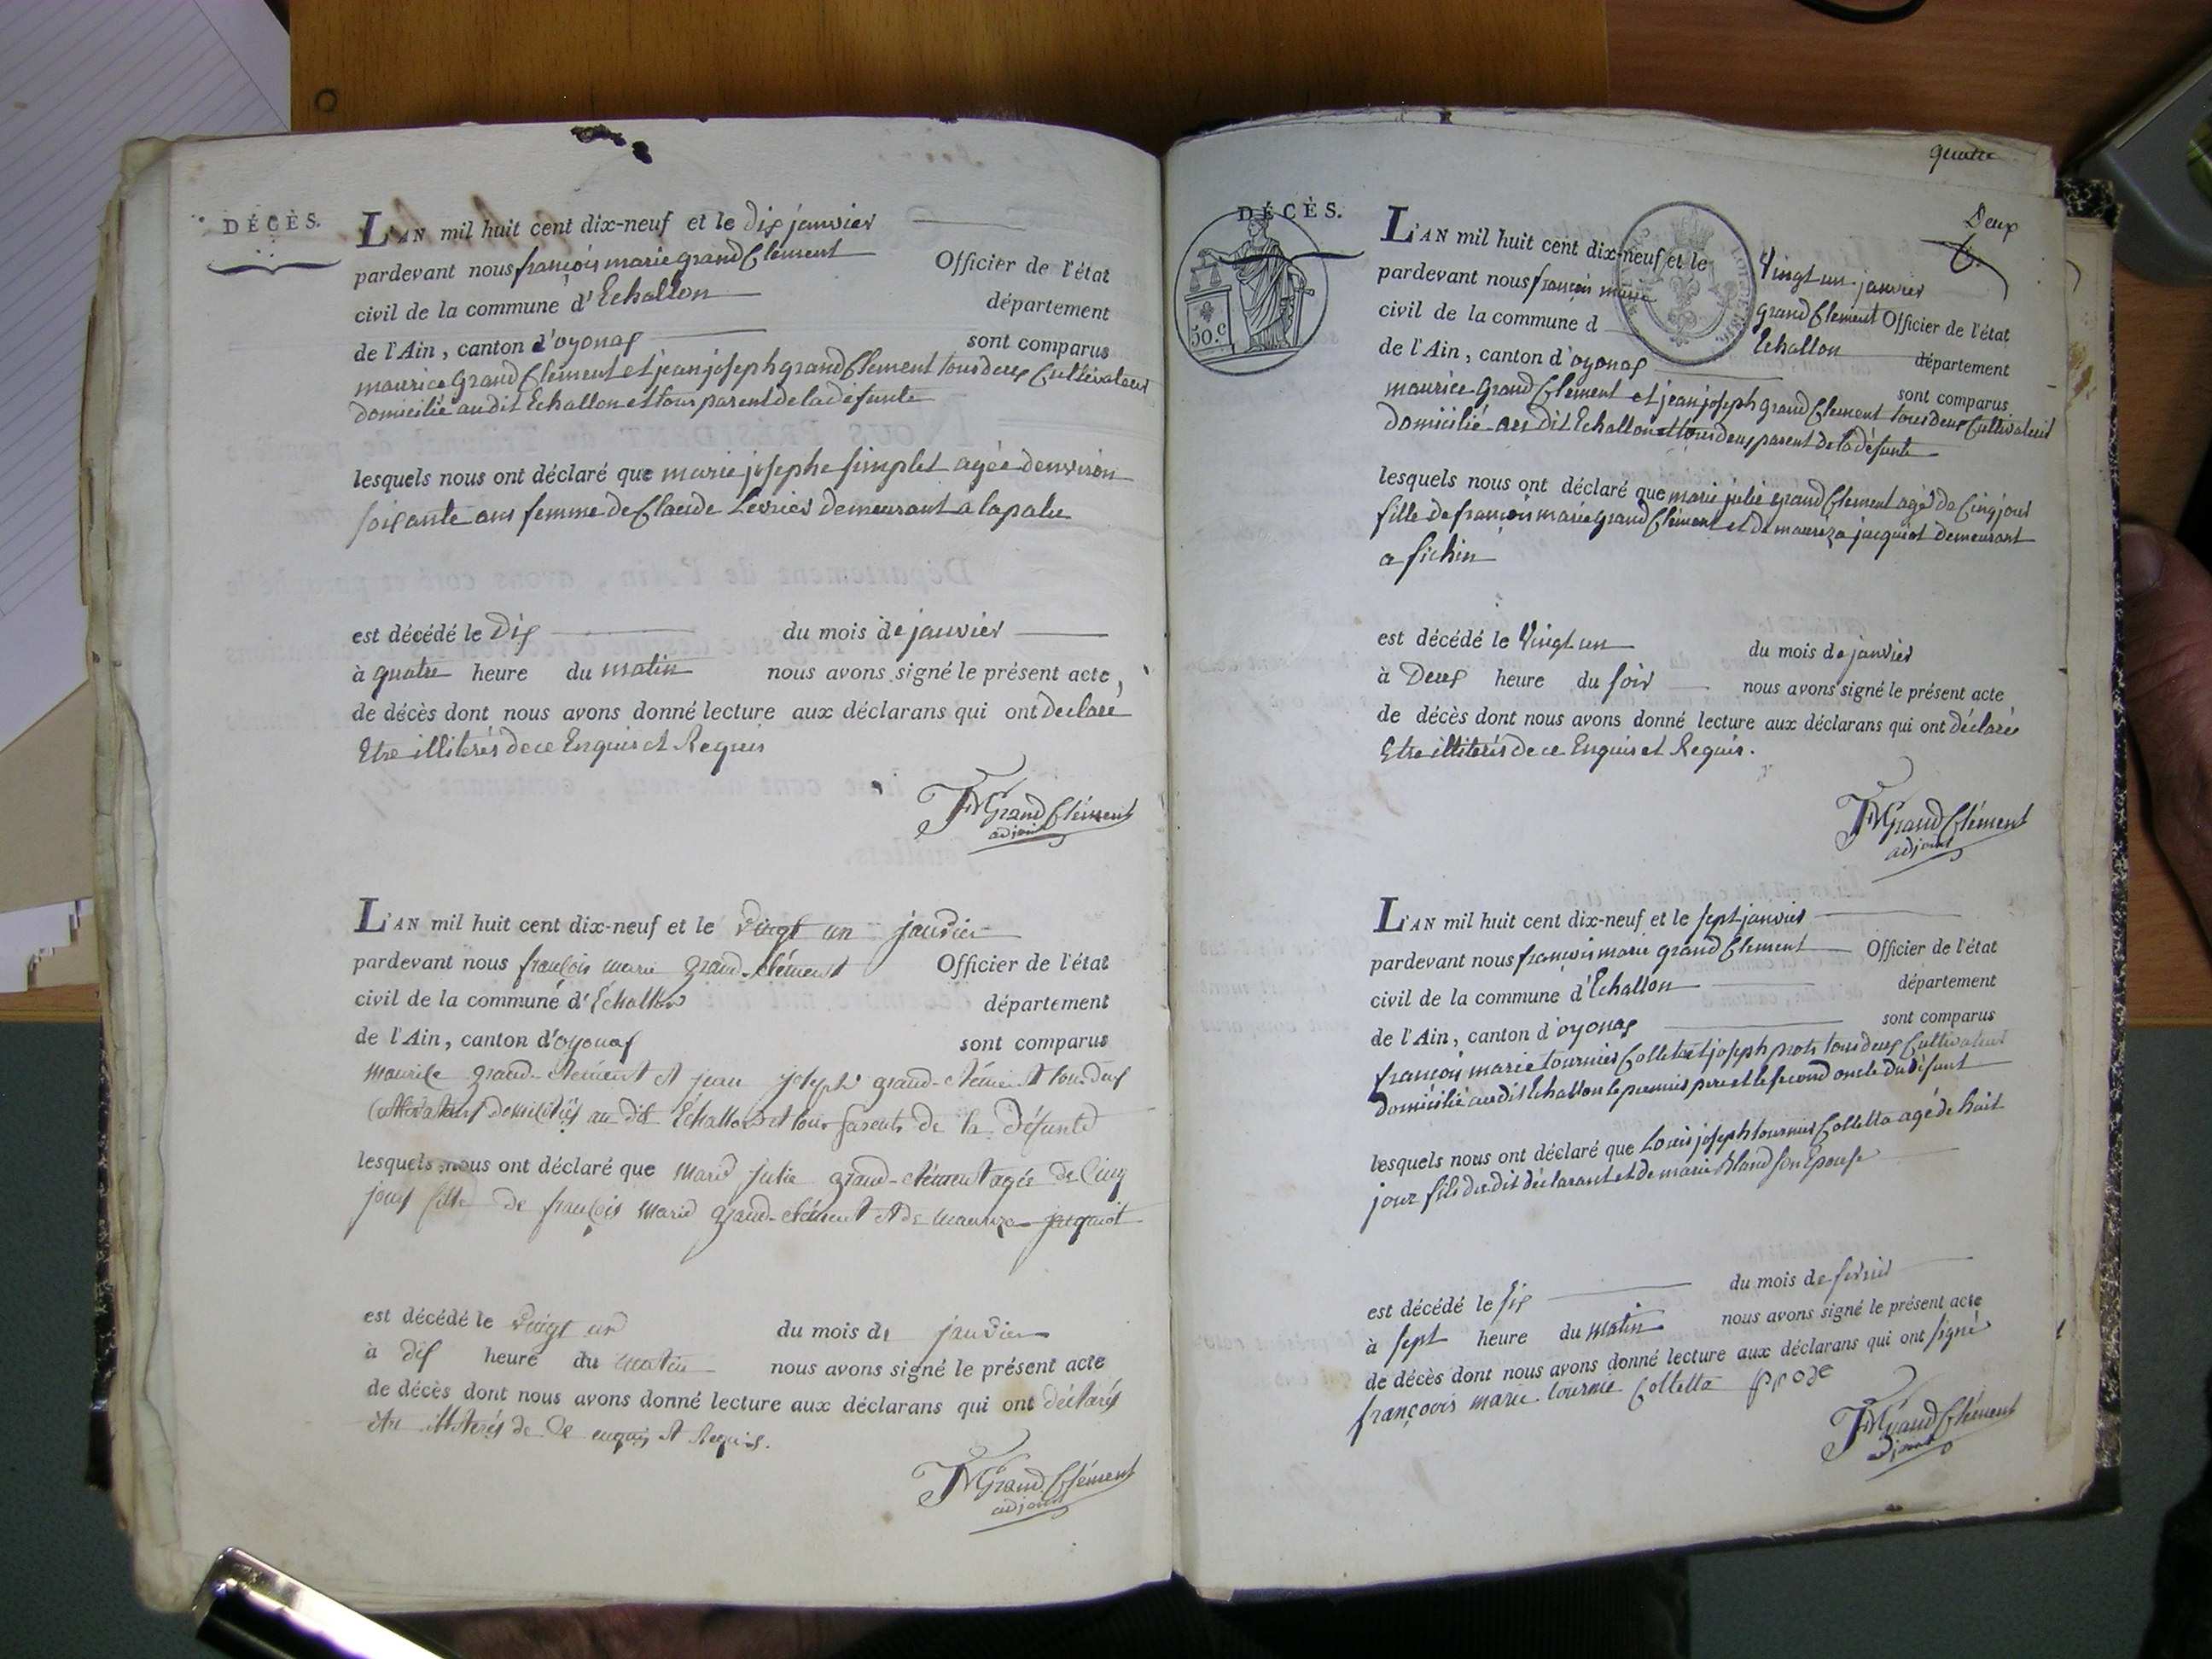 DÉCÈS.
L'AN mil huit cent dix-neuf et le dix janvier
pardevant nous françois marie grand Clement Officier de l'état
civil de la commune d'Echallon département
de l'Ain, canton d'oyonax sont comparus
maurice Grand Clement et jean joseph grand Clement tous deux Cultivateurs
domicilié au dit Echallon et tous parent de la défunte
lesquels nous ont déclaré que marie josephe simplet agée denviron
soixante ans femme de Claude Levrier demeurant a lapalu
est décédé le Dix du mois de janvier
à quatre heure du matin nous avons signé le présent acte,
de décès dont nous avons donné lecture aux déclarans qui ont declaré
Etre illiterés de ce Enquis et Requis
FM Grand Clément
adjoint
L'AN mil huit cent dix-neuf et le vingt un janvier
pardevant nous françois marie grand-clément Officier de l'état
civil de la commune d'Échallon département
de l'Ain, canton d'oyonax sont comparus
maurice grand-clément et jean joseph grand-clément tou deux
Cultivateurs domiciliés au dit Échallon et tous parents de la défunte
lesquels nous ont déclaré que marie julie grand-clément agée de Cinq
jours fille de françois marie grand-clément et de mauriza jacquiot
est décédé le vingt un du mois de janvier
à dix heure du matin nous avons signé le présent acte
de décès dont nous avons donné lecture aux déclarans qui ont déclarés
etre illiterés de Ce enquis et Requis.
FM Grand Clément
adjoint
quatre
DÉCÈS.
50.c
Deux
L'AN mil huit cent dix-neuf et le Vingt un janvier
pardevant nous françois marie grand Clement Officier de l'état
civil de la commune d Echallon département
de l'Ain, canton d'oyonax sont comparus
maurice Grand Clement et jean joseph grand Clement tous deux Cultivateurs
domicilié au dit Echallon et tous deux parent de la défunte
lesquels nous ont déclaré que marie julie grand Clement agé de Cinq jours
fille de françois marie grand Clément et de mauriza jacquiot demeurant
a sichin
est décédé le Vingt un du mois de janvier
à Deux heure du soir nous avons signé le présent acte
de décès dont nous avons donné lecture aux déclarans qui ont déclarés
Etre illiterés de ce Enquis et Requis.
FM Grand Clément
adjoint
L'AN mil huit cent dix-neuf et le sept janvier
pardevant nous françois marie grand Clement Officier de l'état
civil de la commune d'Echallon département
de l'Ain, canton d'oyonax sont comparus
françois marie tournier Colletta et joseph prots tous deux Cultivateurs
domicilié au dit Echallon le premier pere et le second oncle du défunt
lesquels nous ont déclaré que Louis joseph tournier Colletta agé de huit
jour fils du dit déclarant et de marie Bland son Epouse
est décédé le six du mois de fevrier
à sept heure du matin nous avons signé le présent acte
de décès dont nous avons donné lecture aux déclarans qui ont signé
françois marie tournie Colletta
FM Grand Clément
adjoint